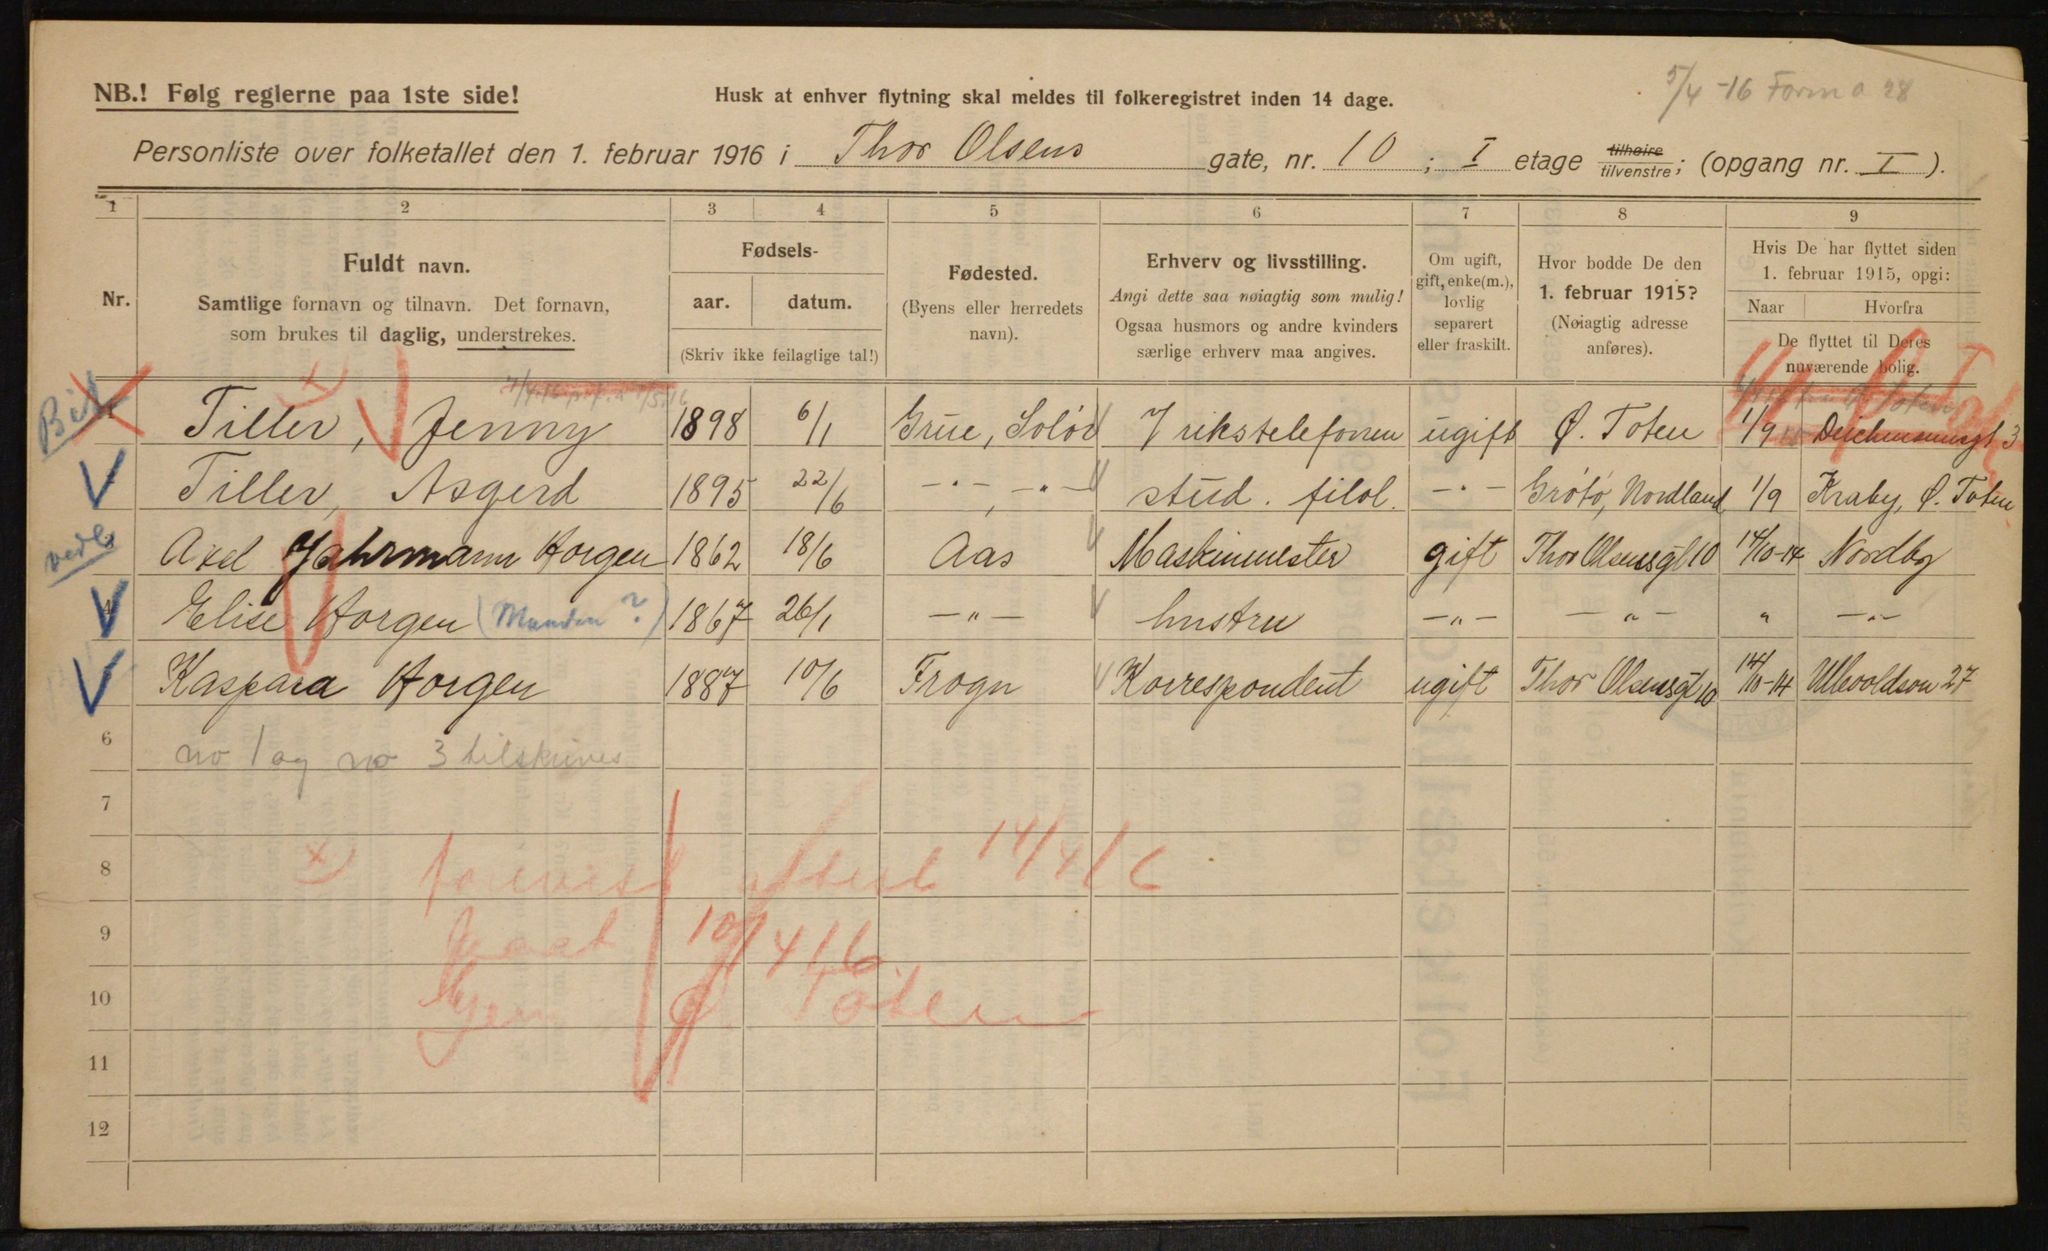 5/4 -16 Form a 28
NB.! Følg reglerne paa 1ste side!
Husk at enhver flytning skal meldes til folkeregistret inden 14 dage.
Personliste over folketallet den 1. februar 1916 i Thor Olsens gate, nr. 10 ; I etage tilhøire tilvenstre ; (opgang nr. I ).
1 2 3 4 5 6 7 8 9
Nr.
Fuldt navn.
Samtlige fornavn og tilnavn. Det fornavn,
som brukes til daglig, understrekes.
Fødsels-
aar. datum.
(Skriv ikke feilagtige tal!)
Fødested.
(Byens eller herredets
navn).
Erhverv og livsstilling.
Angi dette saa nøiagtig som mulig!
Ogsaa husmors og andre kvinders
særlige erhverv maa angives.
Om ugift,
gift, enke(m.),
lovlig
separert
eller fraskilt.
Hvor bodde De den
1. februar 1915?
(Nøiagtig adresse
anføres).
Hvis De har flyttet siden
1. februar 1915, opgi:
Naar Hvorfra
De flyttet til Deres
nuværende bolig.
Tiller, Jenny 1898 6/1 Grue, Solør I rikstelefonen ugift Ø. Toten 1/9 3
Tiller, Asgerd 1895 22/6 -"-, -"- stud. filol. -"- Grøtø, Nordland 1/9 Kraby, Ø. Toten
Axel Jahrmann Horgen 1862 18/6 Aas Maskinmester gift Thor Olsensgt 10 14/10-14 Nordby
4 Elise Horgen (Manden?) 1867 26/1 -"- hustru -"- -"- " -"-
Kaspara Horgen 1887 10/6 Frogn Korrespondent ugift Thor Olsensgt 10 14/10-14 Ullevoldsvn 27
6 no 1 og no 3 tilskrives
7
8 x) forevist attest 14/4 16
9 10/4 16
10 Ø. Toten
11
12